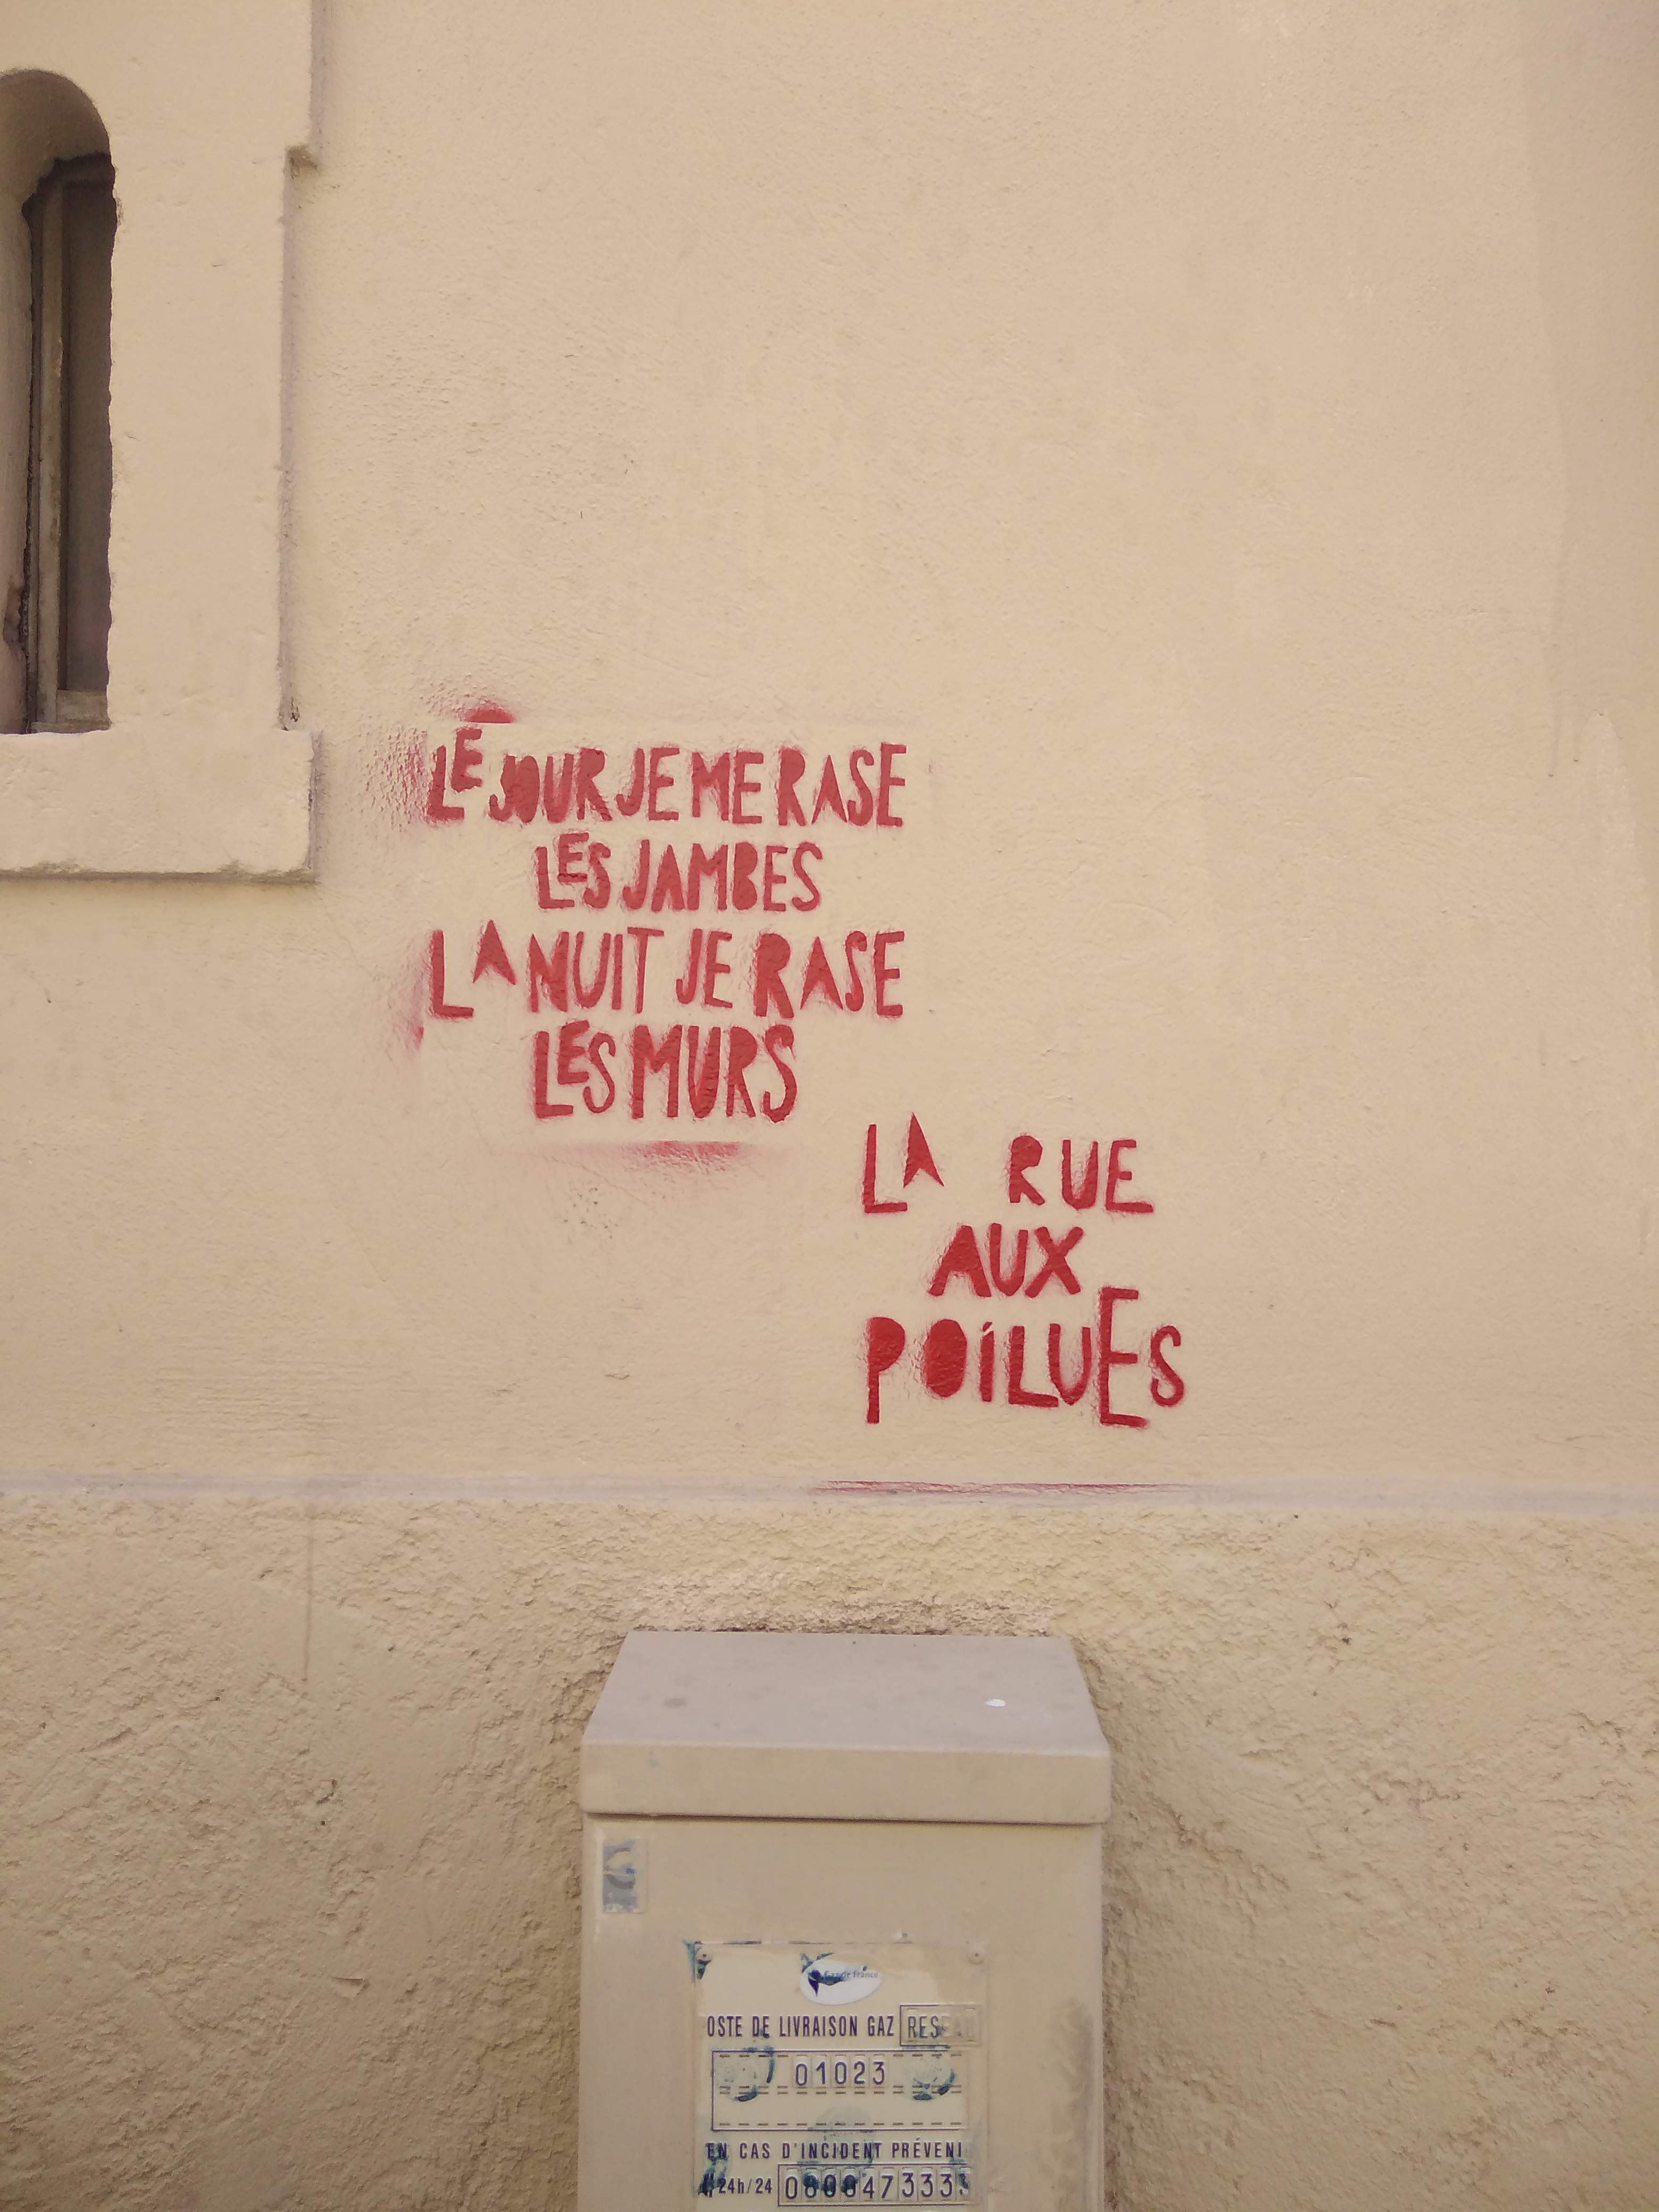 LE JOUR JE ME RASE
LES JAMBES
LA NUIT JE RASE
LES MURS
LA RUE
AUX
POILUES
Gaz de France
OSTE DE LIVRAISON GAZ RESEAU
01023
EN CAS D'INCIDENT PRÉVENI
24h/24 0800473333